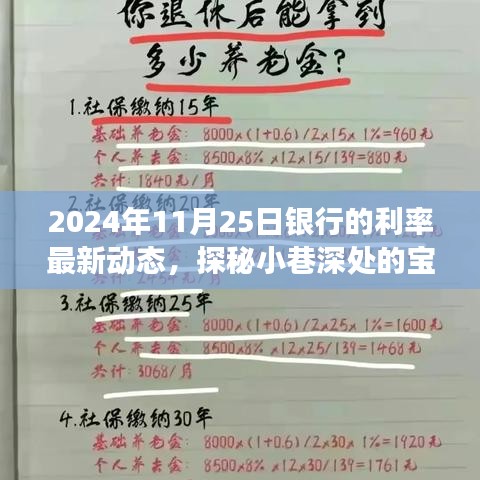 你退休后能拿到
多少养老金?
1.社保缴纳15年
基础养老金: 8000×(1+0.6)/2×15×1%=960元
个人养老金: 8500×8%×12×15/139=880元
共计: 1840元/月
2024年11月25日银行的利率
最新动态，探秘小巷深处的宝
3.社保缴纳25年
8000×(1+0.6)/2×25×1%=1600元
8500×8%×12×25/139=1468元
共计: 3068/月
4.社保缴纳30年
基础养老金: 8000×(1+0.6)/2×30×1%=1920元
个人养老金: 8500×8%×12×30/139=1761元